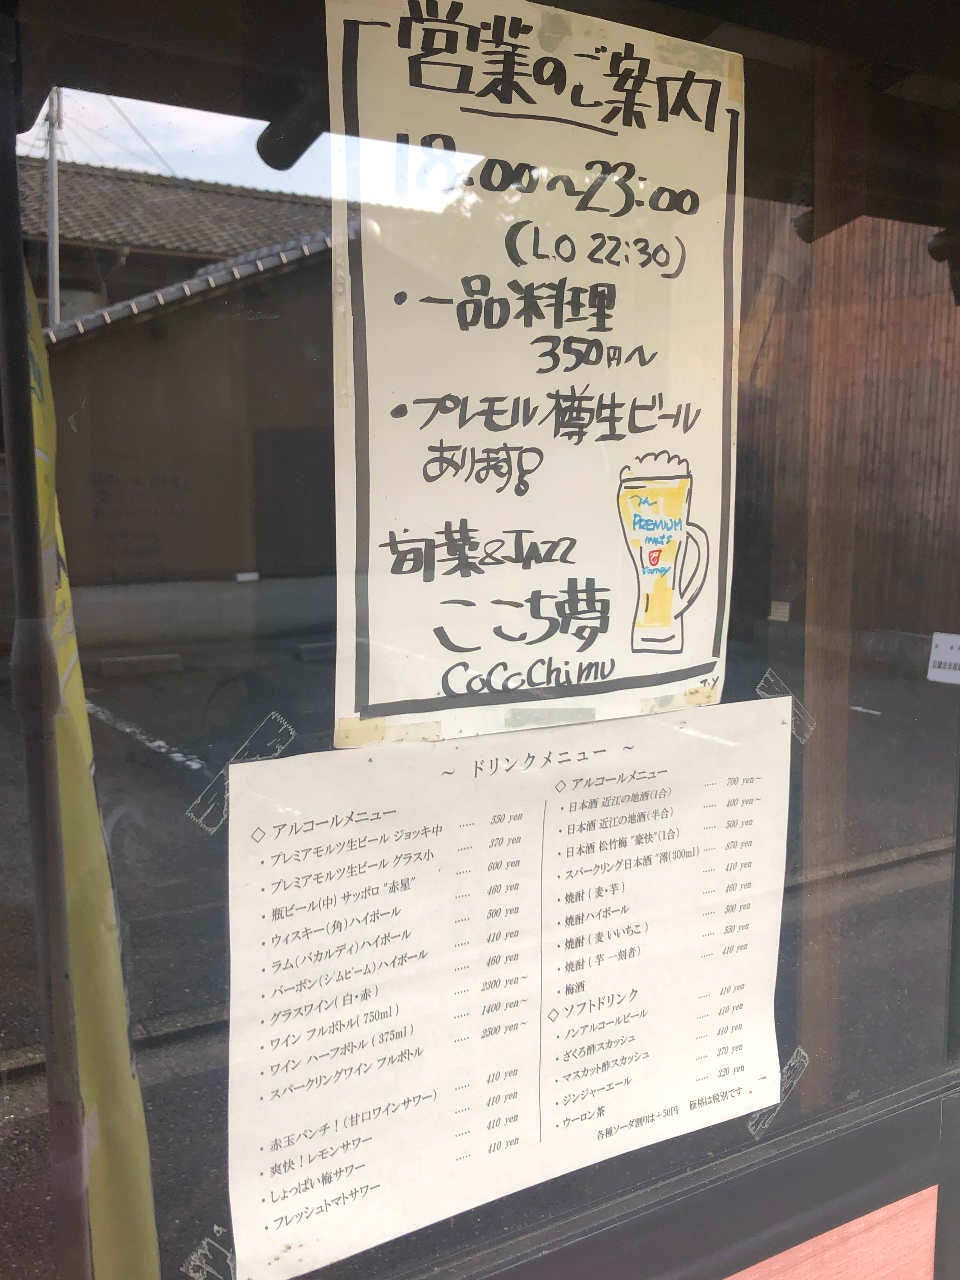 営業のご案内
18:00〜23:00
(L.O 22:30)
・一品料理
350円〜
・プレモル樽生ビール
あります!
PREMIUM
旬菜&JAZZ
ここち夢
CoCoChimu
T.Y
～ ドリンクメニュー ～
◇ アルコールメニュー
・プレミアモルツ生ビール ジョッキ中 ..... 550 yen
・プレミアモルツ生ビール グラス小 ..... 370 yen
・瓶ビール(中) サッポロ "赤星" ..... 600 yen
・ウィスキー(角)ハイボール ..... 460 yen
・ラム(バカルディ)ハイボール ..... 500 yen
・バーボン(ジムビーム)ハイボール ..... 410 yen
・グラスワイン(白・赤) ..... 460 yen
・ワイン フルボトル(750ml) ..... 2300 yen～
・ワイン ハーフボトル(375ml) ..... 1400 yen～
・スパークリングワイン フルボトル ..... 2500 yen～
・赤玉パンチ!(甘口ワインサワー) ..... 410 yen
・爽快!レモンサワー ..... 410 yen
・しょっぱい梅サワー ..... 410 yen
・フレッシュトマトサワー ..... 410 yen
◇ アルコールメニュー
・日本酒 近江の地酒(1合) ..... 700 yen～
・日本酒 近江の地酒(半合) ..... 400 yen～
・日本酒 松竹梅 "豪快"(1合) ..... 500 yen
・スパークリング日本酒 "澪(300ml) ..... 870 yen
・焼酎(麦・芋) ..... 410 yen
・焼酎ハイボール ..... 460 yen
・焼酎(麦 いいちこ) ..... 500 yen
・焼酎(芋 一刻者) ..... 550 yen
・梅酒 ..... 410 yen
◇ ソフトドリンク
・ノンアルコールビール ..... 410 yen
・ざくろ酢スカッシュ ..... 410 yen
・マスカット酢スカッシュ ..... 410 yen
・ジンジャーエール ..... 270 yen
・ウーロン茶 ..... 320 yen
各種ソーダ割りは+50円 価格は税別です